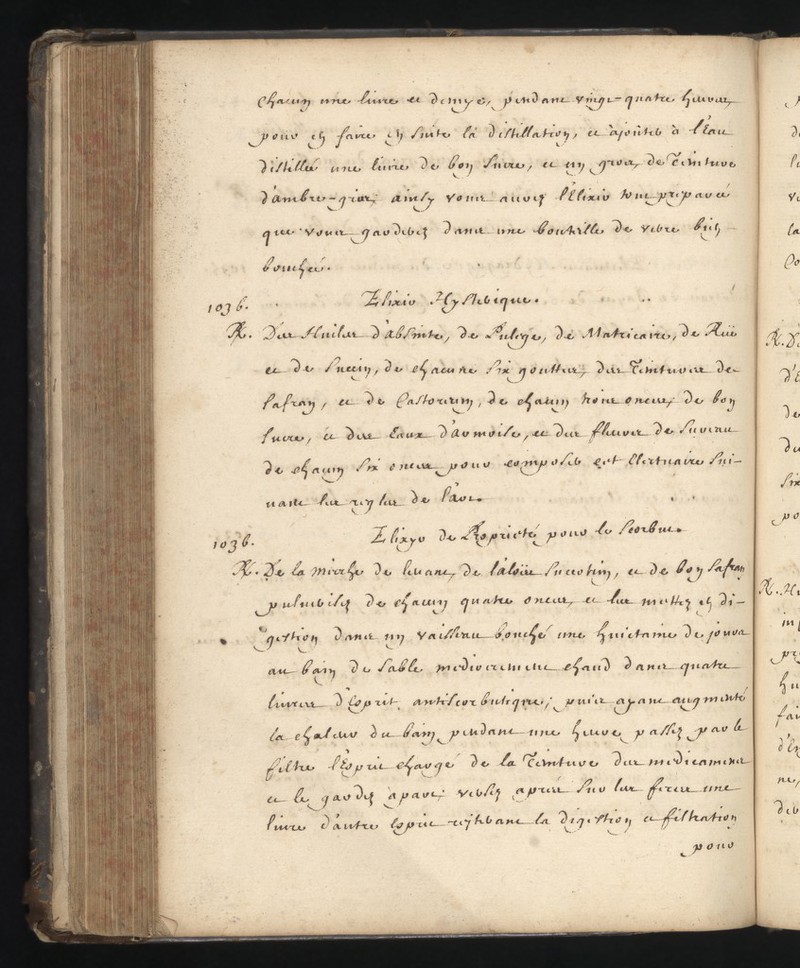 chacun une livre et demye, pendant vingt=quatre heures,
pour en faire en suite la distillation, et ajoutés à l'Eau
distillée une livre de bon sucre, et un gros, de Teinture
d'ambre=gris, ainsy vous aurez l'Elixir tout preparé
que vous garderez dans une bouteille de verre bien
bouchée.
1036. Elixir Hysterique.
R. Des Huiles d'absinte, de Pulege, de Matricaire, de Rüe
et de succin, de chacune six gouttes, des Teintures de
safran, et de Castoreum, de chacun trois onces, de bon
sucre, et des Eaux d'armoise, et des fleurs de sureau
de chacun six onces pour composer cet Electuaire sui-
vant les regles de l'art.
1036. Elixyr de Propriété pour le Scorbut.
R. De la mirrhe de levant, de l'aloës succotrin, et de bon safran
pulverisez de chacun quatre onces, et les mettez en di-
gestion dans un vaisseau bouché une huictaine de jours
au bain de sable mediocrement chaud dans quatre
livres d'esprit antiscorbutique; puis ayant augmenté
la chaleur du bain pendant une heure passez par le
filtre l'Esprit chargé de la Teinture des medicamens
et le gardez apart; versez apres sur les feces une
livre d'autre esprit reïterant la digestion et filtration
pour